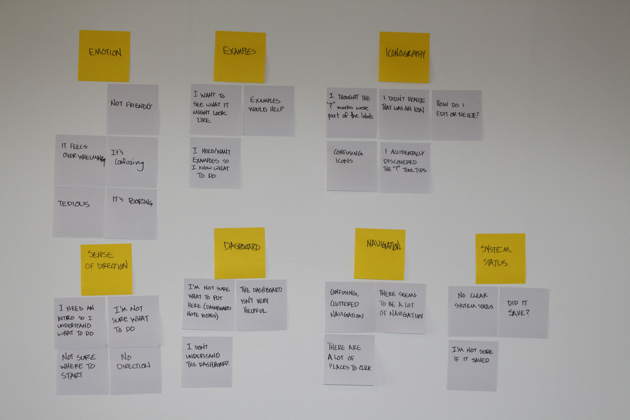 EMOTION
NOT FRIENDLY
IT FEELS
OVERWHELMING
IT'S
Confusing
TEDIOUS
EXAMPLES
I WANT TO
SEE WHAT IT
MIGHT LOOK
LIKE
EXAMPLES
WOULD HELP
I NEED/WANT
EXAMPLES SO
I KNOW WHAT
TO DO
ICONOGRAPHY
I THOUGHT THE
"?" MARKS WERE
PART OF THE LABELS
I DIDN'T REALIZE
THAT WAS AN ICON
HOW DO I
EDIT OR DELETE?
CONFUSING
ICONS
I ACCIDENTALLY
DISCOVERED
THE "?" TOOL TIPS
SENSE
OF DIRECTION
I NEED AN
INTRO SO I
UNDERSTAND
WHAT TO DO
I'M NOT
SURE WHAT
TO DO
NOT SURE
WHERE TO
START
NO
DIRECTION
DASHBOARD
I'M NOT SURE
WHAT TO PUT
HERE (DASHBOARD
NOTE BOXES)
THE DASHBOARD
ISN'T VERY
HELPFUL
I DON'T
UNDERSTAND
THE DASHBOARD
NAVIGATION
CONFUSING,
CLUTTERED
NAVIGATION
THERE SEEMS
TO BE A LOT
OF NAVIGATION
THERE ARE
A LOT OF
PLACES TO CLICK
SYSTEM
STATUS
NO CLEAR
SYSTEM STATUS
DID IT
SAVE?
I'M NOT SURE
IF IT SAVED